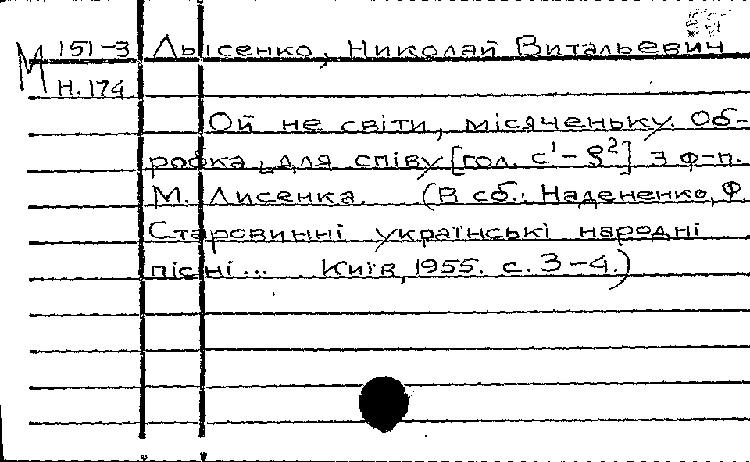 М 151-3 Лысенко, Николай Витальевич
Н.174
Ой не світи, місяченьку. Об-
робка для співу [гол. c¹-g²] з ф-п.
М. Лисенка. (В сб.: Надененко, Ф.
Старовинні українські народні
пісні... Київ, 1955. с. 3-4.)